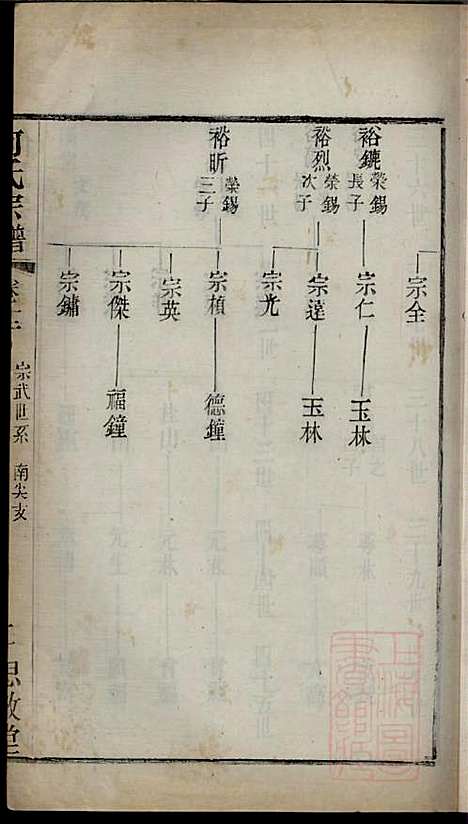 宗全
裕鏕 榮錫長子
宗仁
玉林
裕烈 榮錫次子
宗達
玉林
宗光
裕昕 榮錫三子
宗楨
德鐘
宗英
宗傑
福鐘
宗鏞
氏宗譜
宗武世系 南尖支
思敬堂